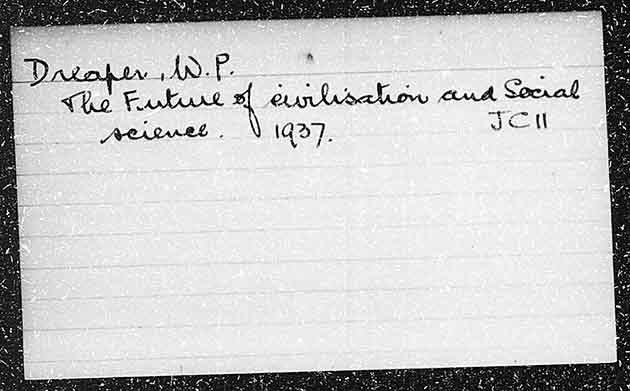 Dreaper, W.P.
The Future of civilisation and Social
science. 1937. JC11